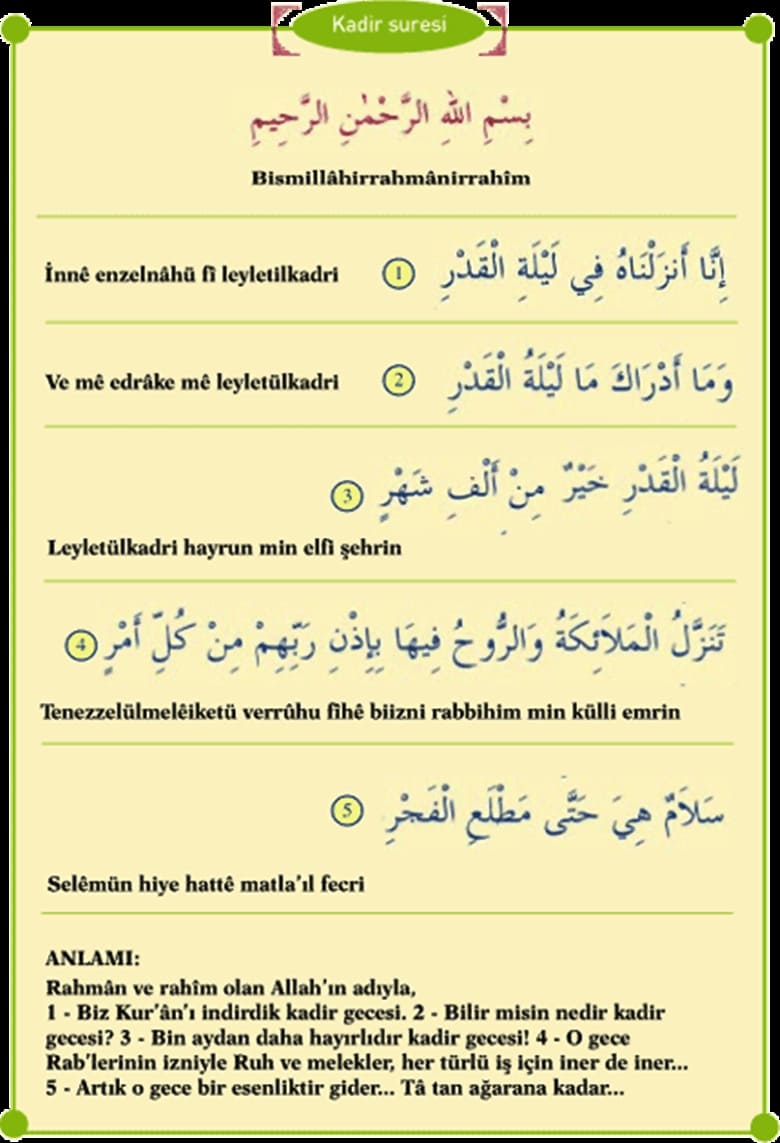 Kadir suresi
بِسْمِ اللهِ الرَّحْمٰنِ الرَّحِيمِ
Bismillâhirrahmânirrahîm
İnnê enzelnâhü fî leyletilkadri 1 إِنَّا أَنزَلْنَاهُ فِي لَيْلَةِ الْقَدْرِ
Ve mê edrâke mê leyletülkadri 2 وَمَا أَدْرَاكَ مَا لَيْلَةُ الْقَدْرِ
لَيْلَةُ الْقَدْرِ خَيْرٌ مِنْ أَلْفِ شَهْرٍ 3
Leyletülkadri hayrun min elfi şehrin
تَنَزَّلُ الْمَلاَئِكَةُ وَالرُّوحُ فِيهَا بِإِذْنِ رَبِّهِمْ مِنْ كُلِّ أَمْرٍ 4
Tenezzelülmelêiketü verrûhu fîhê biizni rabbihim min külli emrin
سَلاَمٌ هِيَ حَتَّى مَطْلَعِ الْفَجْرِ 5
Selêmün hiye hattê matla'ıl fecri
ANLAMI:
Rahmân ve rahîm olan Allah'ın adıyla,
1 - Biz Kur'ân'ı indirdik kadir gecesi. 2 - Bilir misin nedir kadir
gecesi? 3 - Bin aydan daha hayırlıdır kadir gecesi! 4 - O gece
Rab'lerinin izniyle Ruh ve melekler, her türlü iş için iner de iner...
5 - Artık o gece bir esenliktir gider... Tâ tan ağarana kadar...